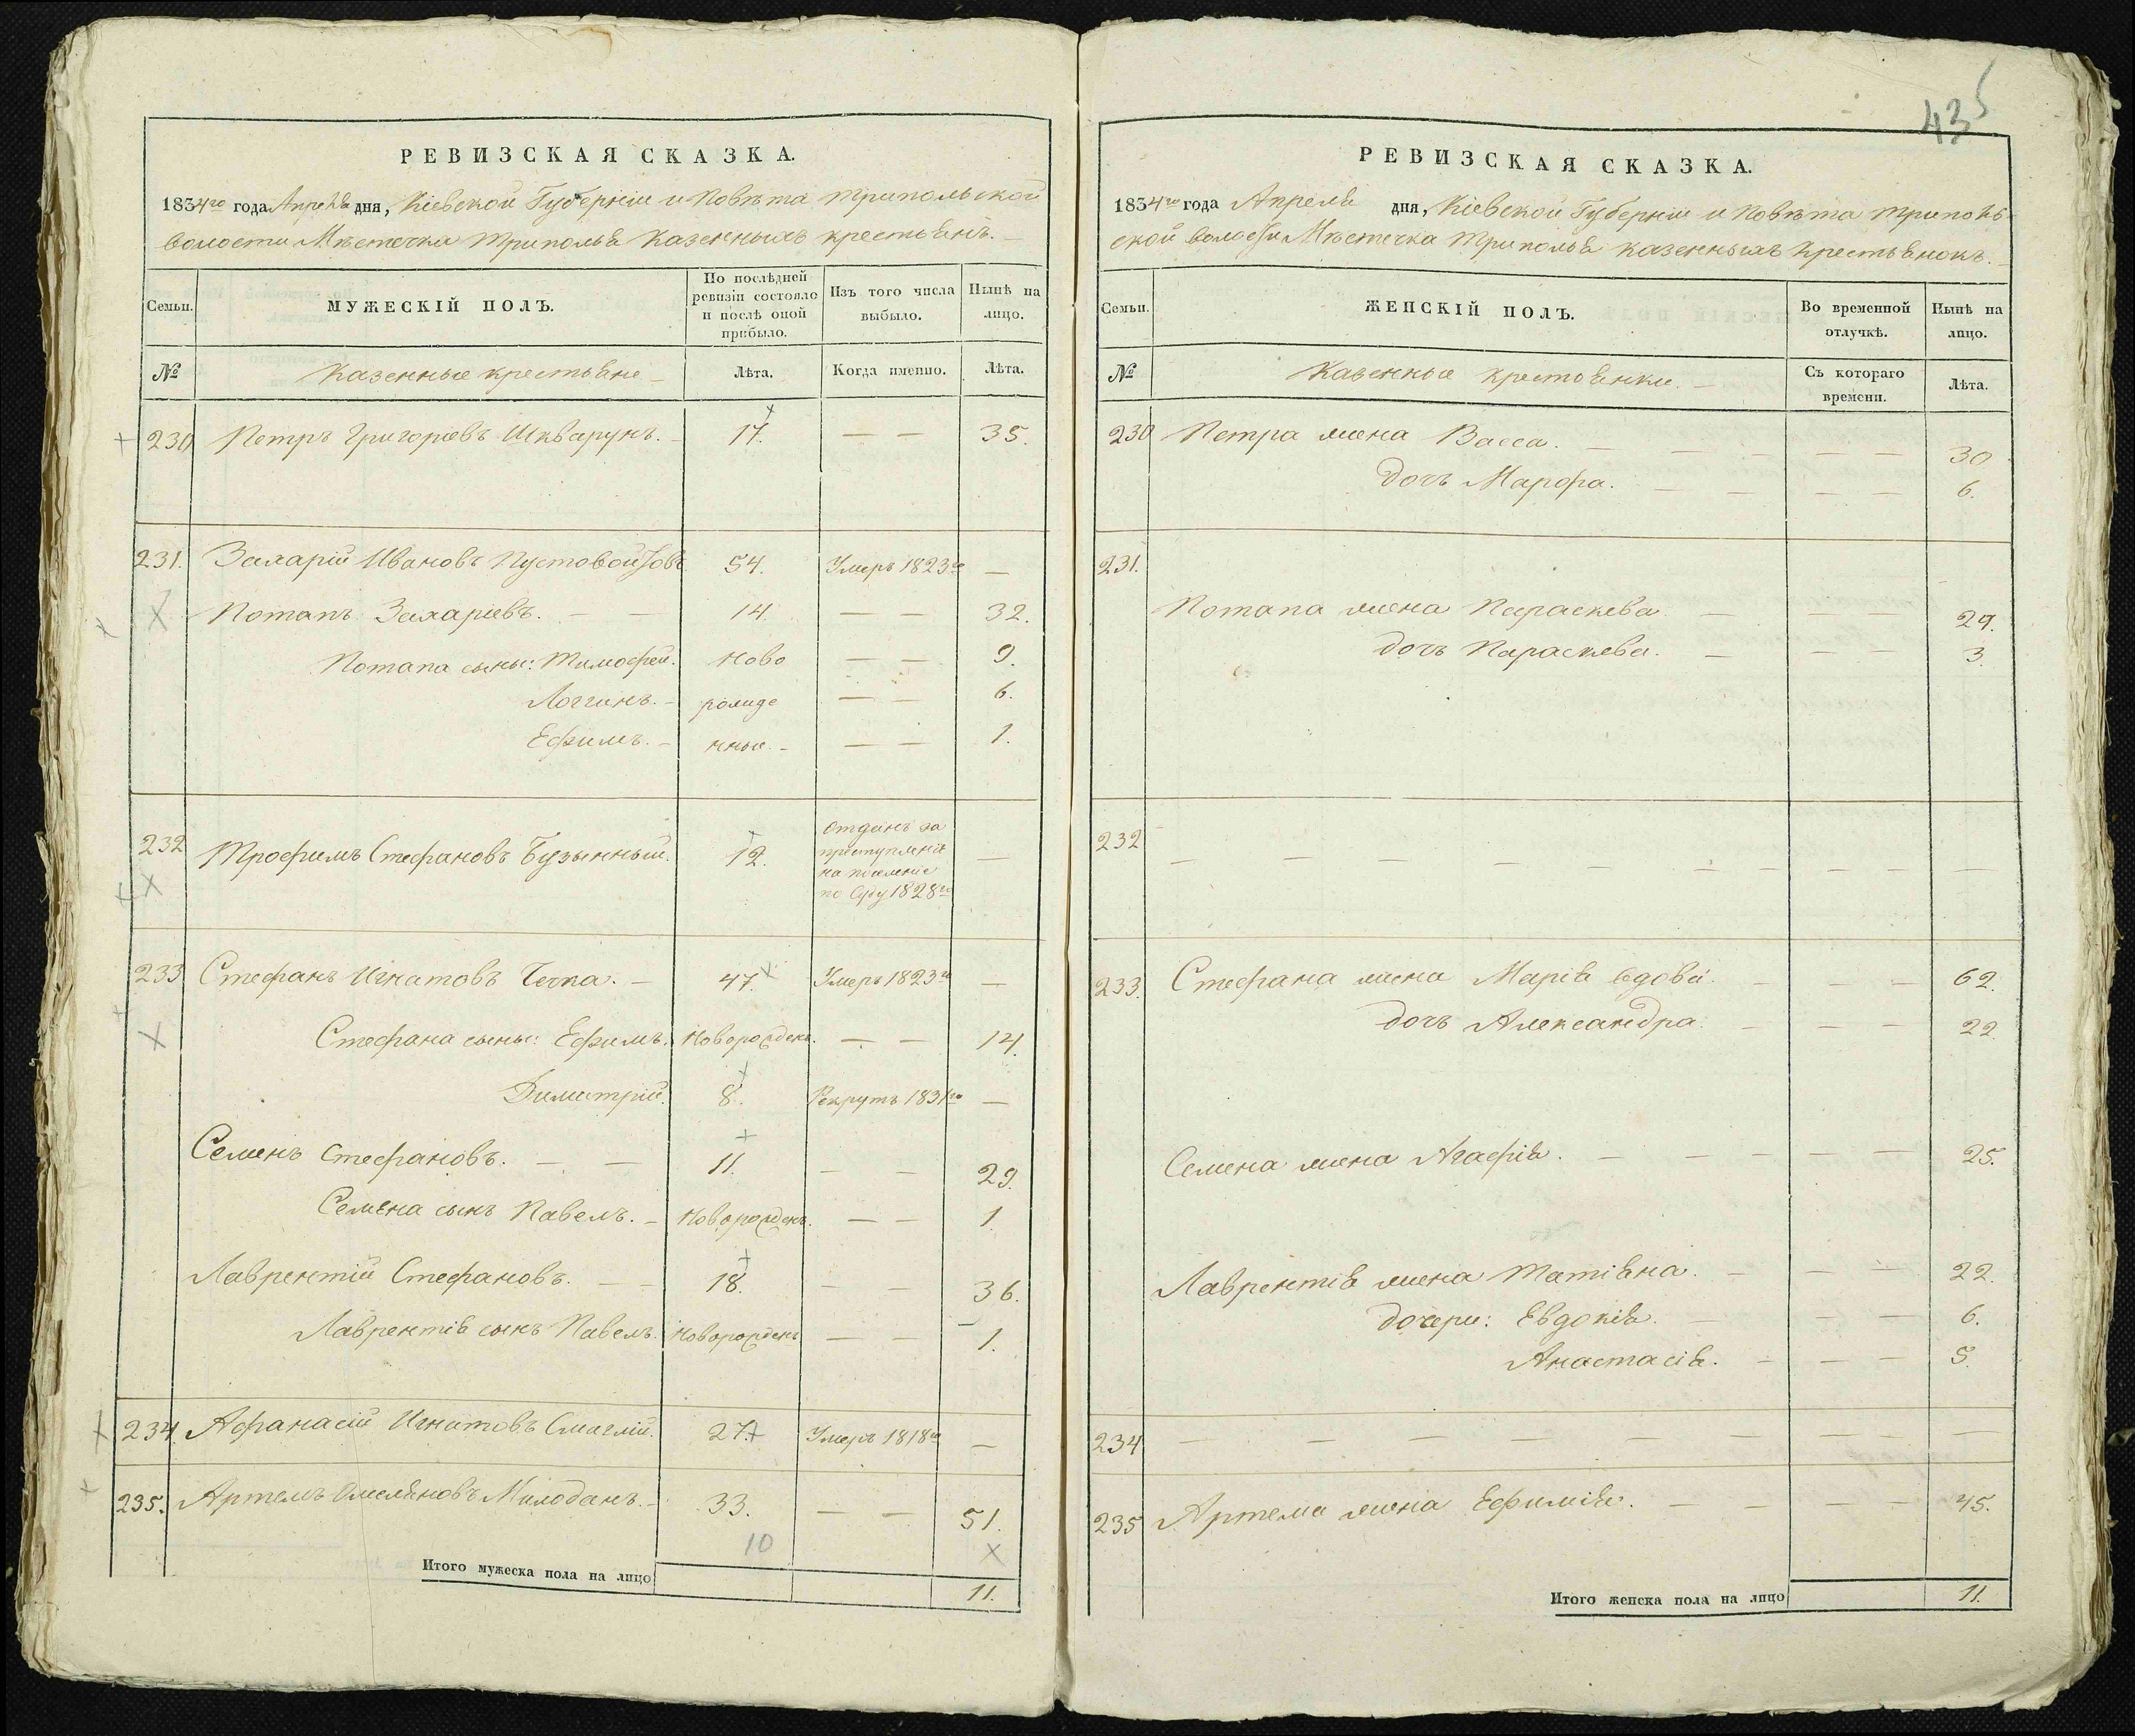 435
РЕВИЗСКАЯ СКАЗКА.
1834го года Апреля дня, Кіевской Губерніи и Повѣта Трипольской
волости Мѣстечка Триполья Казенныхъ крестьянъ. —
Семьи. МУЖЕСКІЙ ПОЛЪ. По послѣдней ревизіи состояло и послѣ оной прибыло. Изъ того числа выбыло. Нынѣ на лицо.
№ Казенные крестьяне — Лѣта. Когда именно. Лѣта.
230 Петръ Григорьевъ Шкварунъ. — 17. — — 35.
231. Захарій Ивановъ Пустовойтовъ 54. Умеръ 1823го —
Потапъ Захаріевъ. — — 14. — — 32.
Потапа сыны: Тимофей. Ново — — 9.
Логгинъ. — рожде — — 6.
Ефимъ. — нные. — — — 1.
232 Трофимъ Стефановъ Бузынный. 12. отданъ за преступленіе на поселеніе по Суду 1828го —
233 Стефанъ Игнатовъ Чечка. — 47. Умеръ 1823го —
Стефана сыны: Ефимъ. Новорожденъ. — — 14.
Димитрій. 8. Рекрутъ 1831го —
Семенъ Стефановъ. — — 11. — — 29.
Семена сынъ Павелъ. — Новорожденъ. — — 1.
Лаврентій Стефановъ. — — 18. — — 36.
Лаврентія сынъ Павелъ. Новорожденъ — — 1.
234. Афанасій Игнатовъ Смаглій. 27. Умеръ 1818го —
235. Артемъ Омеляновъ Милоданъ. — 33. — — 51.
10 X
Итого мужеска пола на лицо 11.
РЕВИЗСКАЯ СКАЗКА.
1834го года Апреля дня, Кіевской Губерніи и Повѣта Триполь
ской волости Мѣстечка Триполья казенныхъ крестьянокъ. —
Семьи. ЖЕНСКІЙ ПОЛЪ. Во временной отлучкѣ. Нынѣ на лицо.
№ Казенные крестьянки. — Съ котораго времени. Лѣта.
230 Петра жена Васса. — — — — — — 30
дочь Марфа. — — — — — 6.
231.
Потапа жена Параскева. — — — 29.
дочь Параскева. — — — 3.
232 — — — — — — — — — —
233. Стефана жена Марія вдова. — — — 62.
дочь Александра. — — — 22.
Семена жена Агафія. — — — — — — 25.
Лаврентія жена Татіяна. — — — 22.
дочери: Евдокія. — — — 6.
Анастасія. — — — 5.
234 — — — — — — — — — —
235 Артема жена Ефимія. — — — — 45.
Итого женска пола на лицо 11.